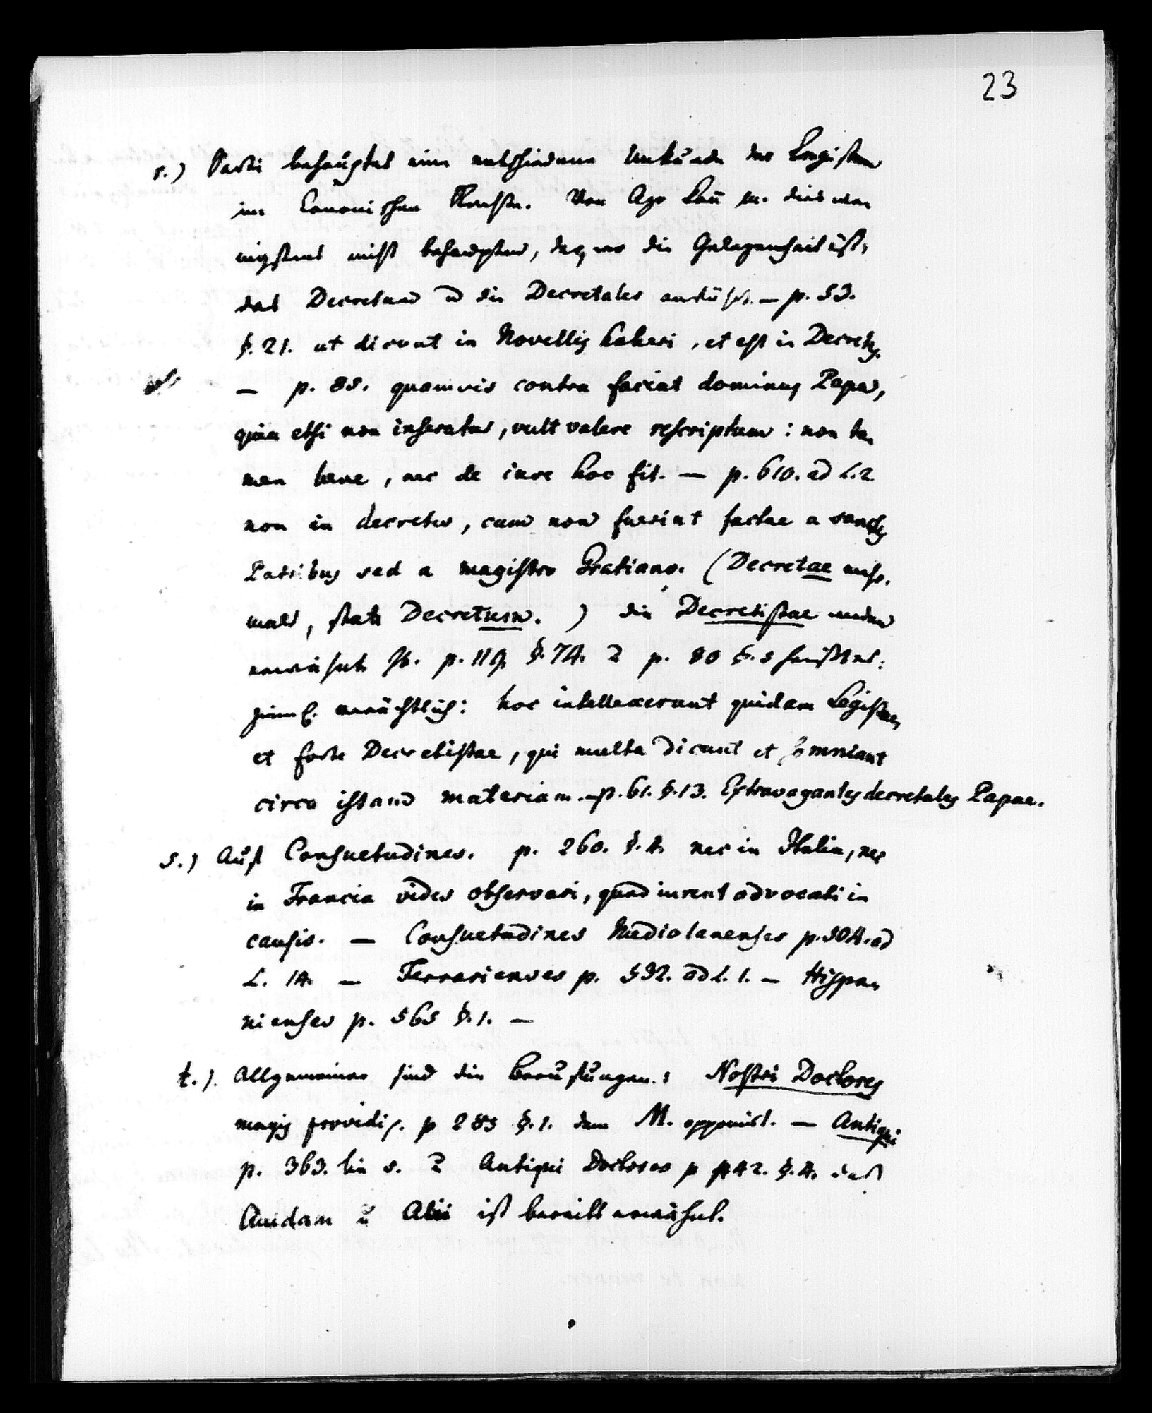 23
r.) Sarti behauptet eine entschiedene Unkunde der Legisten
im Canonischen Rechte. Von Azo kann m. dies we-
nigstens nicht behaupten, da, wo die Gelegenheit ist,
das Decretum u die Decretales anführt. — p. 53.
§. 21. ut dicunt in Novellis haberi, et est in Decretis
— p. 88. quamvis contra faciat dominus Papa,
quia etsi non inseratur, vult valere rescriptum: non ta-
men bene, nec de iure hoc fit. — p. 610. ad L. 2
non in decretis, cum non fuerint factae a sanctis
Patribus sed a magistro Gratiano. (Decretae
mals, statt Decretum.) die Decretistae werden
erwähnt p. 119 §. 74. u p. 80 §.
verächtlich: hoc intellexerunt quidam Legistae,
et forte Decretistae, qui multa dicunt et somniant
circa istam materiam. — p. 61. §. 13. Extravagantes decretales Papae.
s.) Auf Consuetudines. p. 260. §. 4. nec in Italia, nec
in Francia vides observari, quod iurent advocati in
causis. — Consuetudines Mediolanenses p. 504. ad
L. 14. — Ferrarienses p. 532. ad L. 1. — Hispa-
nienses p. 565 §. 1. —
t.). Allgemeiner sind die Berufungen: Nostri Doctores
magis providi, p 283 §. 1. dem M. opponirt. — Antiqui
p. 363. lin s. u Antiqui Doctores p 442. §. 4. daß
Quidam u Alii ist bereits erwähnt.